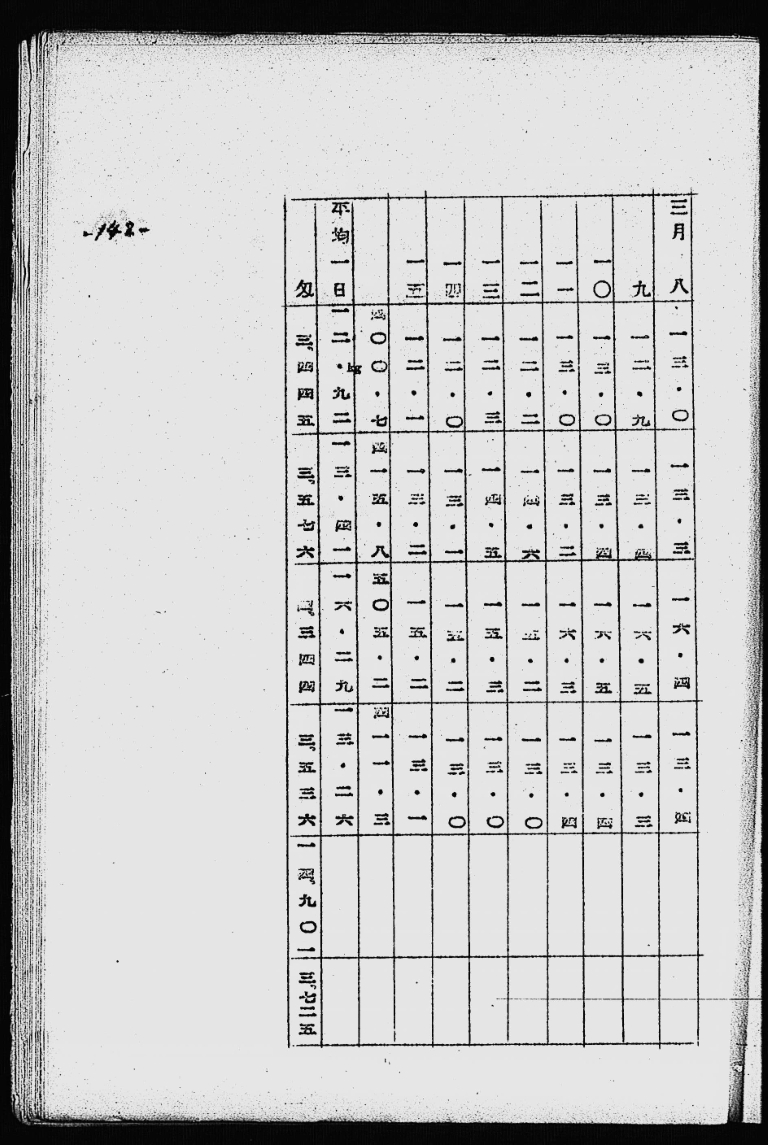 -142-
三月 八 一三・〇 一三・三 一六・四 一三・四
九 一二・九 一三・四 一六・五 一三・三
一〇 一三・〇 一三・四 一六・五 一三・四
一一 一三・〇 一三・二 一六・三 一三・四
一二 一二・二 一四・六 一五・二 一三・〇
一三 一二・三 一四・五 一五・三 一三・〇
一四 一二・〇 一三・一 一五・二 一三・〇
一五 一二・一 一三・二 一五・二 一三・一
四〇〇・七 四一五・八 五〇五・二 四一一・三
平均一日 一二・九二kg 一三・四一 一六・二九 一三・二六
匁 三、四四五 三、五七六 四、三四四 三、五三六 一四、九〇一 三、七二五